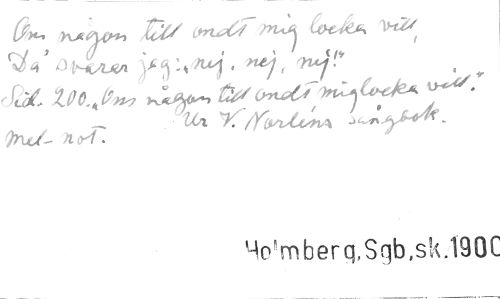 Om någon till ondt mig locka vill,
Då svarar jag: „nej, nej, nej!"
Sid. 200. „Om någon till ondt mig locka vill."
Ur V. Norlins sångbok.
mel- not.
Holmberg,Sgb,sk.1900